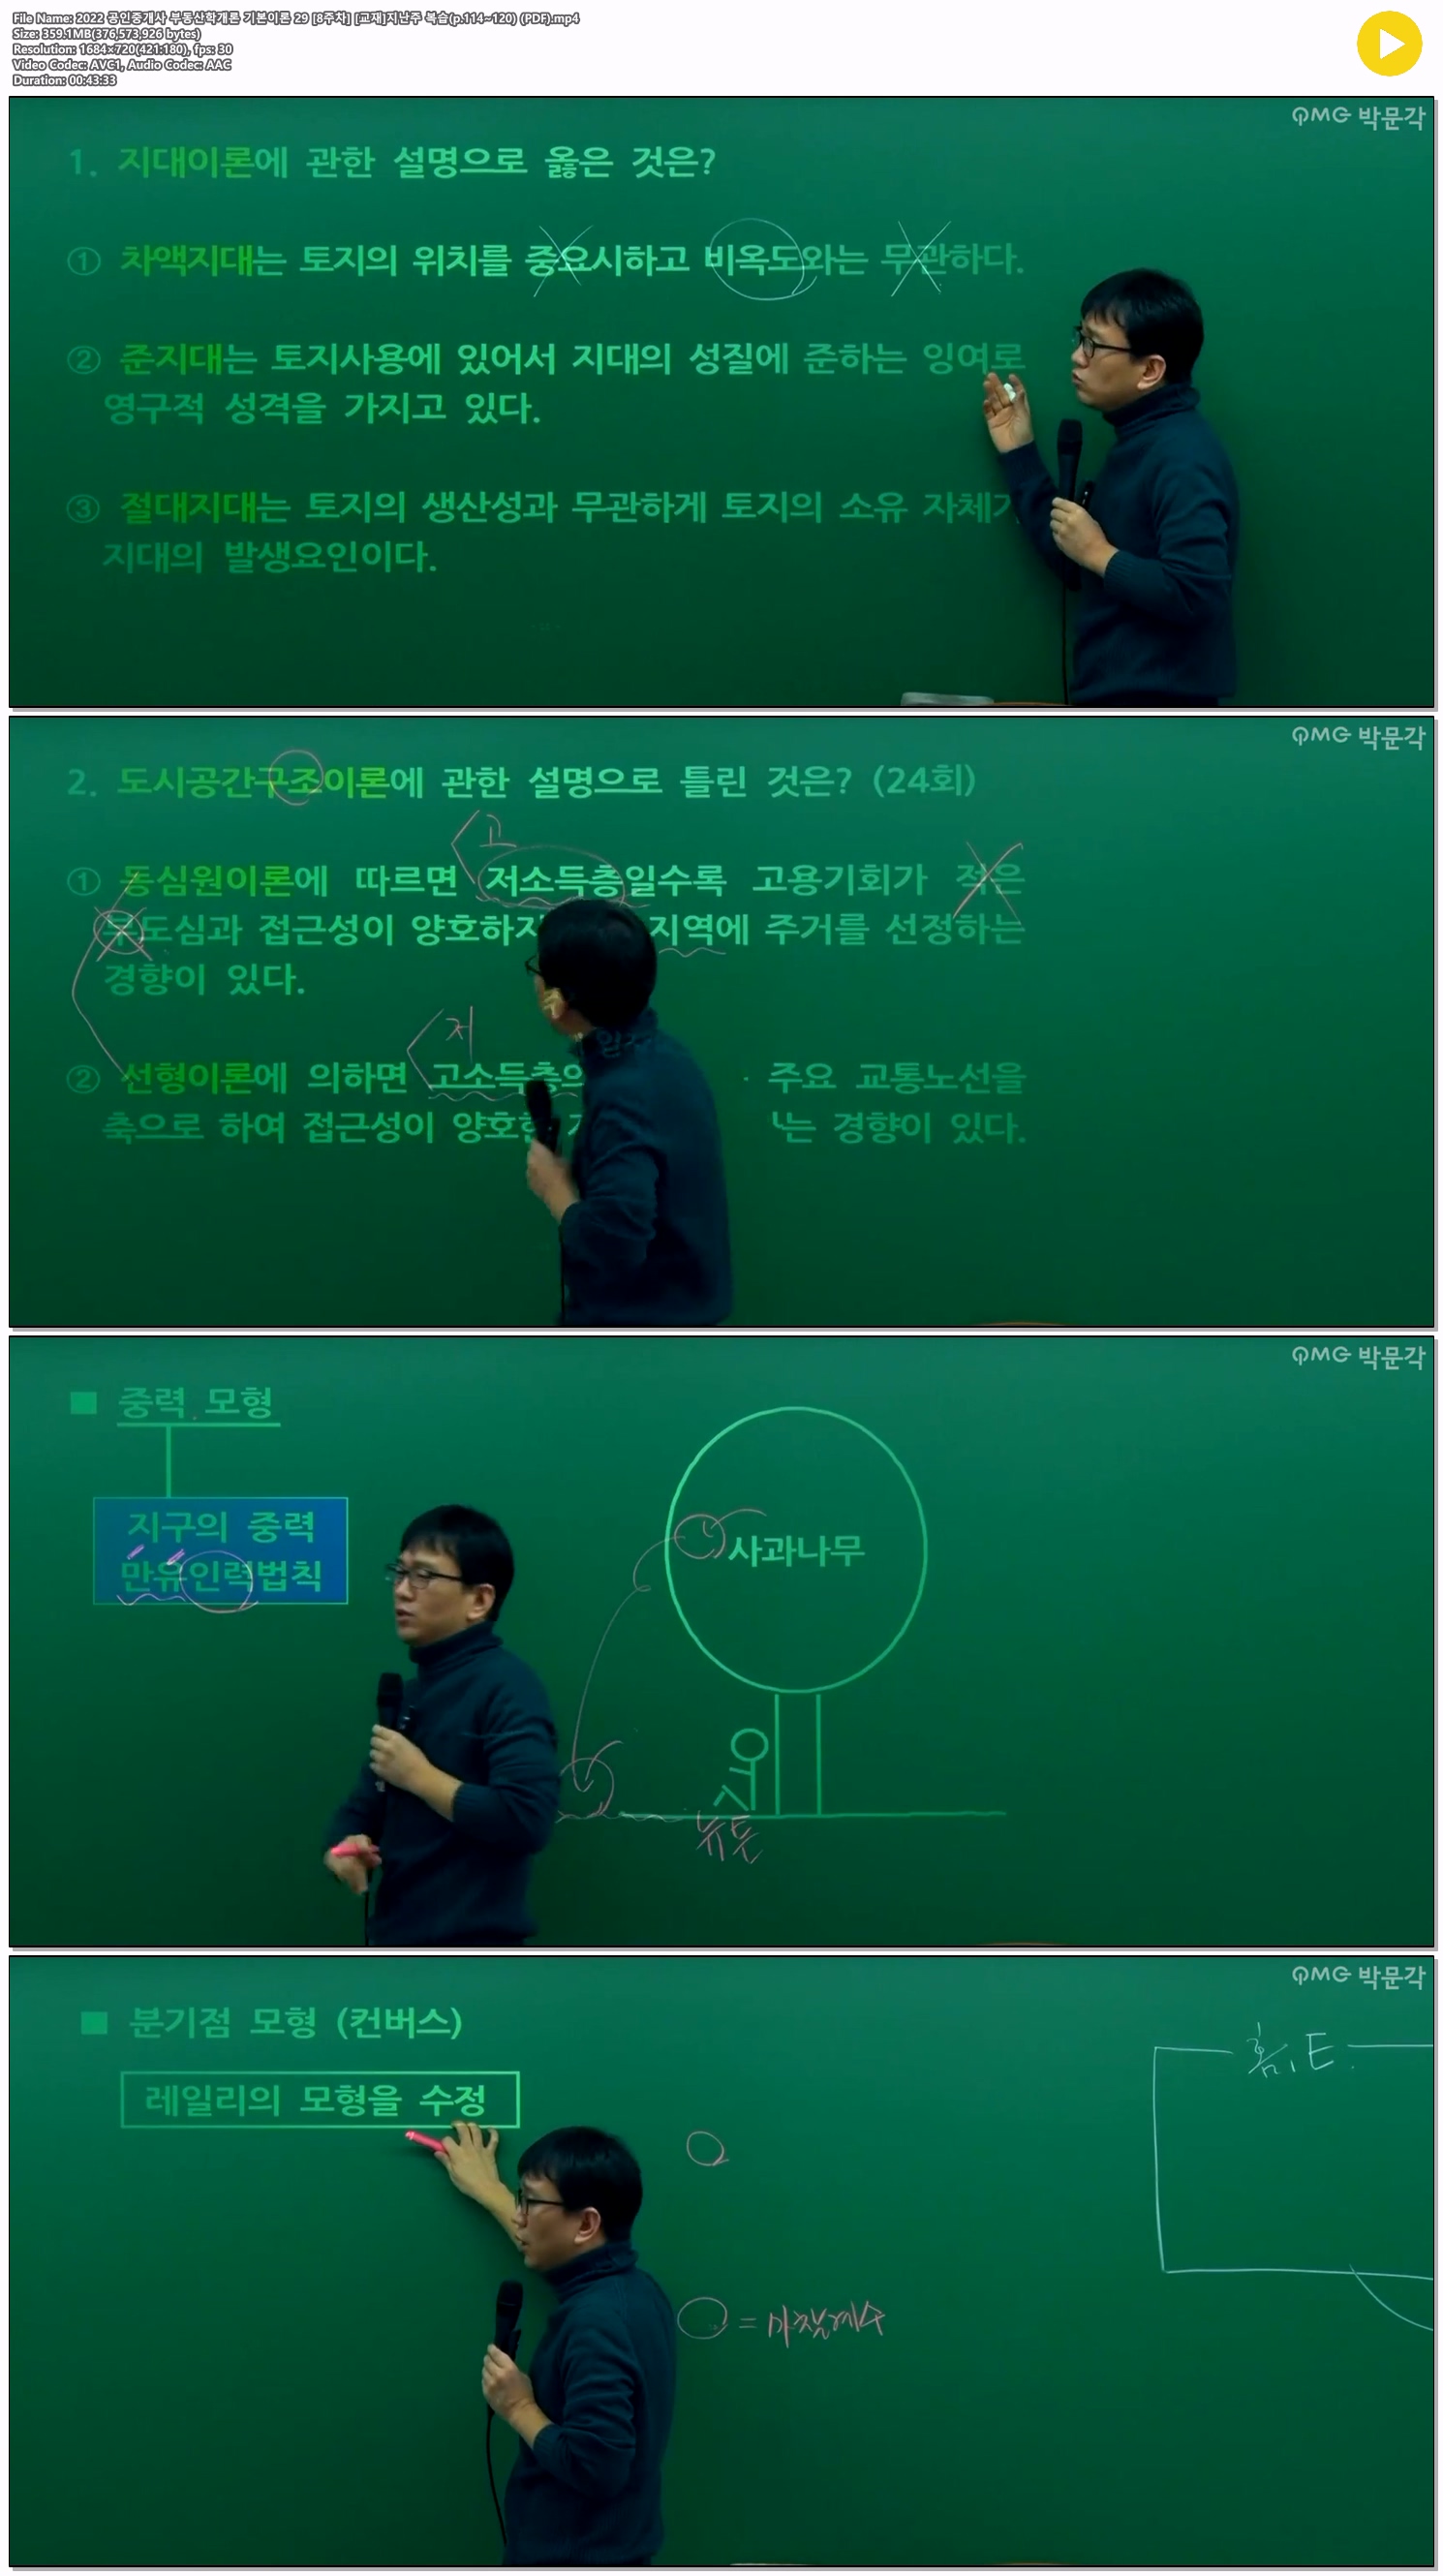 File Name: 2022 공인중개사 부동산학개론 기본이론 29 [8주차] [교재]지난주 복습(p.114~120) (PDF).mp4
Size: 359.1MB(376,573,926 bytes)
Resolution: 1684×720(421:180), fps: 30
Video Codec: AVC1, Audio Codec: AAC
Duration: 00:43:33
QMG 박문각
1. 지대이론에 관한 설명으로 옳은 것은?
① 차액지대는 토지의 위치를 중요시하고 비옥도와는 무관하다.
② 준지대는 토지사용에 있어서 지대의 성질에 준하는 잉여로
영구적 성격을 가지고 있다.
③ 절대지대는 토지의 생산성과 무관하게 토지의 소유 자체가
지대의 발생요인이다.
QMG 박문각
2. 도시공간구조이론에 관한 설명으로 틀린 것은? (24회)
고
① 동심원이론에 따르면 저소득층일수록 고용기회가 적은
부도심과 접근성이 양호하지 지역에 주거를 선정하는
경향이 있다.
저
② 선형이론에 의하면 고소득층의 주요 교통노선을
축으로 하여 접근성이 양호한 는 경향이 있다.
QMG 박문각
■ 중력 모형
지구의 중력
만유인력법칙
사과나무
뉴튼
QMG 박문각
■ 분기점 모형 (컨버스)
레일리의 모형을 수정
E
= 마찰계수